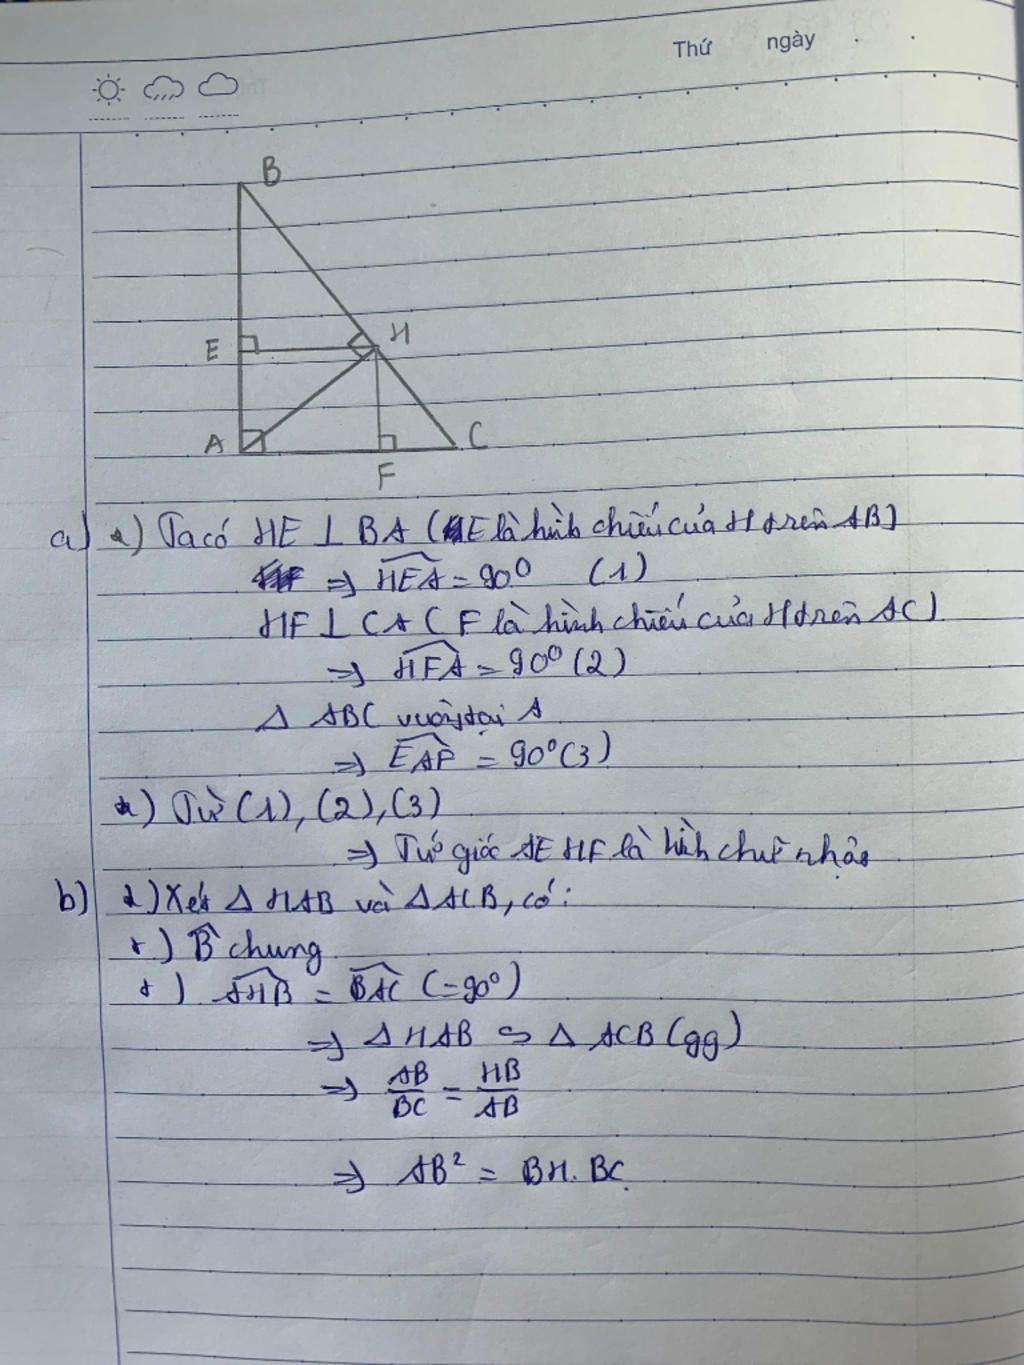 Thứ ngày . .
B
E H
A C
F
a) *) Ta có HE ⊥ BA (E là hình chiếu của H trên AB)
⇒ \widehat{HEA} = 90° (1)
HF ⊥ CA ( F là hình chiếu của H trên AC)
⇒ \widehat{HFA} = 90° (2)
Δ ABC vuông tại A
⇒ \widehat{EAF} = 90° (3)
*) Từ (1), (2), (3)
⇒ Tứ giác AEHF là hình chữ nhật
b) *) Xét Δ HAB và Δ ACB, có:
+) \widehat{B} chung
+) \widehat{AHB} = \widehat{BAC} (=90°)
⇒ Δ HAB ∽ Δ ACB (gg)
⇒ AB/BC = HB/AB
⇒ AB² = BH. BC